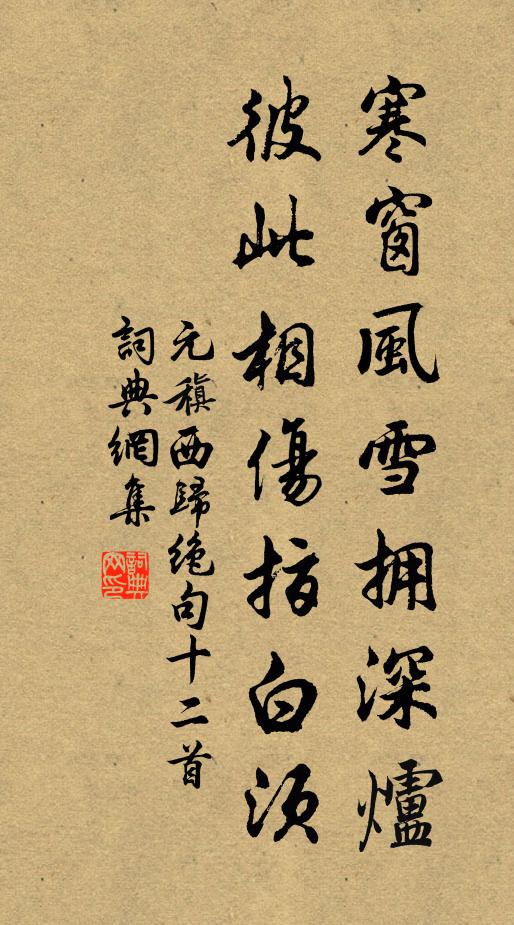 寒窗風雪拥深爐
彼此相傷指白须
元稹西歸絶句十二首
詞典網集
詞典网印